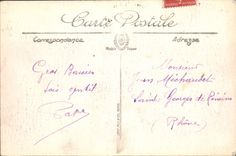 Carte Postale
Correspondance
Adresse
Gros Baisers
sois gentil
Papa
Monsieur
Jean Michaudet
Saint Georges de Reneins
(Rhône)